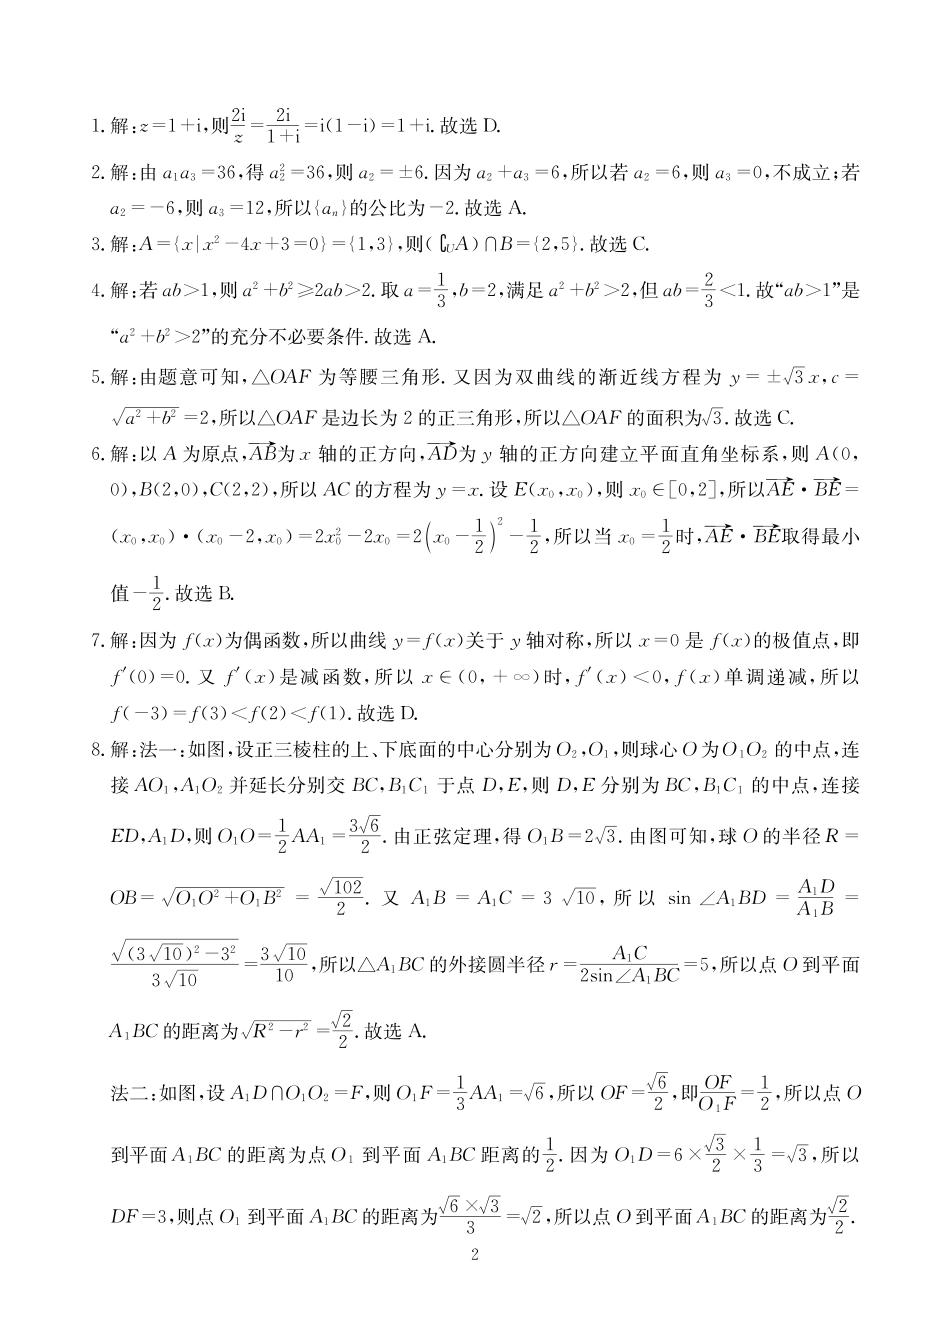 1. 解:z=1+i,则\frac{2i}{z}=\frac{2i}{1+i}=i(1-i)=1+i. 故选 D.
2. 解:由 a₁a₃=36,得 a₂²=36,则 a₂=±6. 因为 a₂+a₃=6,所以若 a₂=6,则 a₃=0,不成立;若
a₂=-6,则 a₃=12,所以{aₙ}的公比为-2. 故选 A.
3. 解:A={x|x²-4x+3=0}={1,3},则(∁_U A)∩B={2,5}. 故选 C.
4. 解:若 ab>1,则 a²+b²≥2ab>2. 取 a=\frac{1}{3},b=2,满足 a²+b²>2,但 ab=\frac{2}{3}<1. 故“ab>1”是
“a²+b²>2”的充分不必要条件. 故选 A.
5. 解:由题意可知,△OAF 为等腰三角形. 又因为双曲线的渐近线方程为 y=±√3 x,c=
\sqrt{a²+b²}=2,所以△OAF 是边长为 2 的正三角形,所以△OAF 的面积为√3. 故选 C.
6. 解:以 A 为原点,\overrightarrow{AB}为 x 轴的正方向,\overrightarrow{AD}为 y 轴的正方向建立平面直角坐标系,则 A(0,
0),B(2,0),C(2,2),所以 AC 的方程为 y=x. 设 E(x₀,x₀),则 x₀∈[0,2],所以\overrightarrow{AE}·\overrightarrow{BE}=
(x₀,x₀)·(x₀-2,x₀)=2x₀²-2x₀=2(x₀-\frac{1}{2})²-\frac{1}{2},所以当 x₀=\frac{1}{2}时,\overrightarrow{AE}·\overrightarrow{BE}取得最小
值-\frac{1}{2}. 故选 B.
7. 解:因为 f(x)为偶函数,所以曲线 y=f(x)关于 y 轴对称,所以 x=0 是 f(x)的极值点,即
f′(0)=0. 又 f′(x)是减函数,所以 x∈(0,+∞)时,f′(x)<0,f(x)单调递减,所以
f(-3)=f(3)<f(2)<f(1). 故选 D.
8. 解:法一:如图,设正三棱柱的上、下底面的中心分别为 O₂,O₁,则球心 O 为O₁O₂ 的中点,连
接 AO₁,A₁O₂ 并延长分别交 BC,B₁C₁ 于点 D,E,则 D,E 分别为 BC,B₁C₁ 的中点,连接
ED,A₁D,则 O₁O=\frac{1}{2}AA₁=\frac{3√6}{2}. 由正弦定理,得 O₁B=2√3. 由图可知,球 O 的半径 R=
OB=\sqrt{O₁O²+O₁B²}=\frac{\sqrt{102}}{2}. 又 A₁B=A₁C=3\sqrt{10},所以 sin∠A₁BD=\frac{A₁D}{A₁B}=
\frac{\sqrt{(3\sqrt{10})²-3²}}{3\sqrt{10}}=\frac{3\sqrt{10}}{10},所以△A₁BC 的外接圆半径 r=\frac{A₁C}{2sin∠A₁BC}=5,所以点 O 到平面
A₁BC 的距离为\sqrt{R²-r²}=\frac{√2}{2}. 故选 A.
法二:如图,设 A₁D∩O₁O₂=F,则 O₁F=\frac{1}{3}AA₁=√6,所以 OF=\frac{√6}{2},即\frac{OF}{O₁F}=\frac{1}{2},所以点 O
到平面 A₁BC 的距离为点 O₁ 到平面 A₁BC 距离的\frac{1}{2}. 因为 O₁D=6×\frac{√3}{2}×\frac{1}{3}=√3,所以
DF=3,则点 O₁ 到平面 A₁BC 的距离为\frac{√6×√3}{3}=√2,所以点 O 到平面 A₁BC 的距离为\frac{√2}{2}.
2